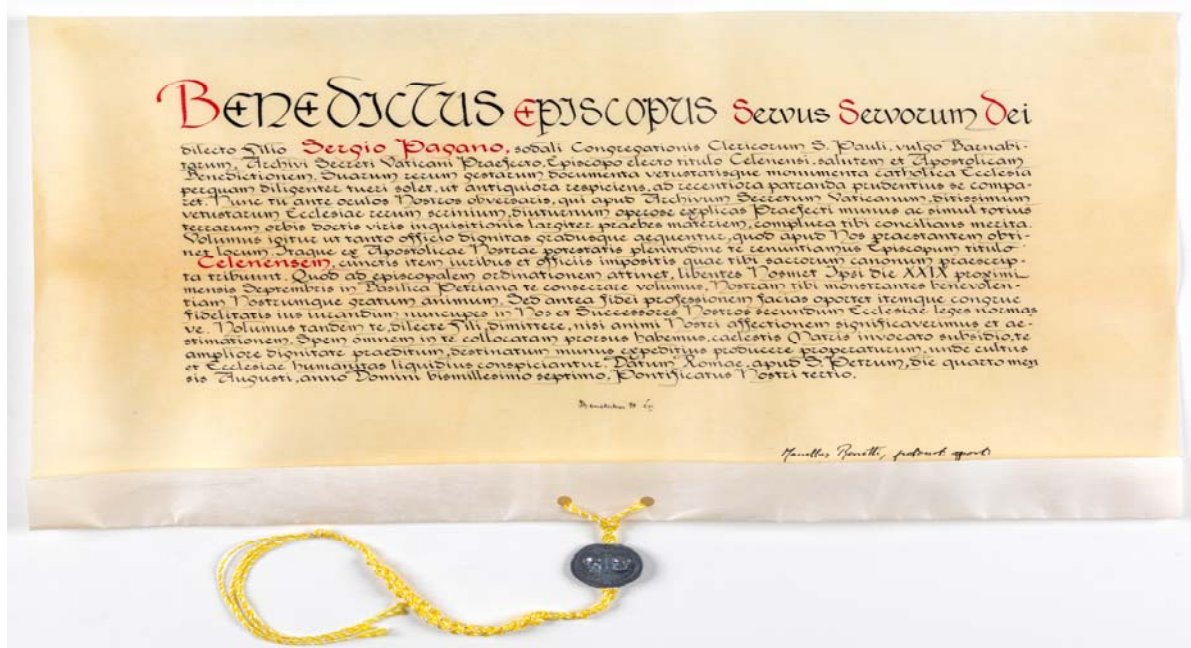 BENEDICTUS EPISCOPUS Servus Servorum Dei
dilecto Filio Sergio Pagano, sodali Congregationis Clericorum S. Pauli, vulgo Barnabi-
tarum, Archivi Secreti Vaticani Praefecto, Episcopo electo titulo Celenensi, salutem et Apostolicam
Benedictionem. Suarum rerum gestarum documenta vetustatisque monumenta catholica Ecclesia
perquam diligenter tueri solet, ut antiquiora respiciens, ad recentiora patranda prudentius se compa-
ret. Nunc tu ante oculos Nostros obversaris, qui apud Archivum Secretum Vaticanum, ditissimum
vetustarum Ecclesiae rerum scrinium, diuturnum operose explicas Praefecti munus ac simul totius
terrarum orbis doctis viris inquisitionis largiter praebes materiem, complura tibi concilians merita.
Volumus igitur ut tanto officio dignitas gradusque aequentur, quod apud Nos praestantem obti-
net locum. Itaque ex Apostolicae Nostrae potestatis plenitudine te renuntiamus Episcopum titulo
Celenensem, cunctis item iuribus et officiis impositis quae tibi sacrorum canonum praescrip-
ta tribuunt. Quod ad episcopalem ordinationem attinet, libentes Nosmet Ipsi die XXIX proximi
mensis Septembris in Basilica Petriana te consecrare volumus, Nostram tibi monstrantes benevolen-
tiam Nostrumque gratum animum. Sed antea fidei professionem facias oportet itemque congrue
fidelitatis ius iurandum nuncupes in Nos et Successores Nostros secundum Ecclesiae leges normas
ve. Nolumus tandem te, dilecte Fili, dimittere, nisi animi Nostri affectionem significaverimus et ae-
stimationem. Spem omnem in te collocatam prorsus habemus, caelestis Matris invocato subsidio, te
ampliore dignitate praeditum, destinatum munus expeditius producere properaturum, unde cultus
et Ecclesiae humanitas liquidius conspiciantur. Datum Romae, apud S. Petrum, die quarto men
sis Augusti, anno Domini bismillesimo septimo, Pontificatus Nostri tertio.
Marcellus Rossetti, protonot. apost.